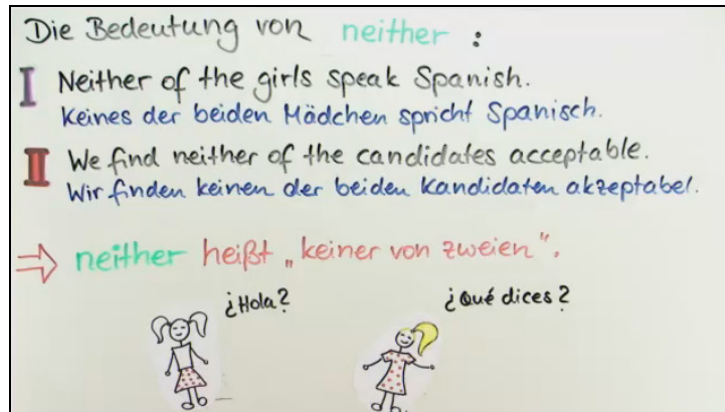 Die Bedeutung von neither :
I Neither of the girls speak Spanish.
Keines der beiden Mädchen spricht Spanisch.
II We find neither of the candidates acceptable.
Wir finden keinen der beiden Kandidaten akzeptabel.
⇒ neither heißt „keiner von zweien“.
¿Hola? ¿Qué dices?